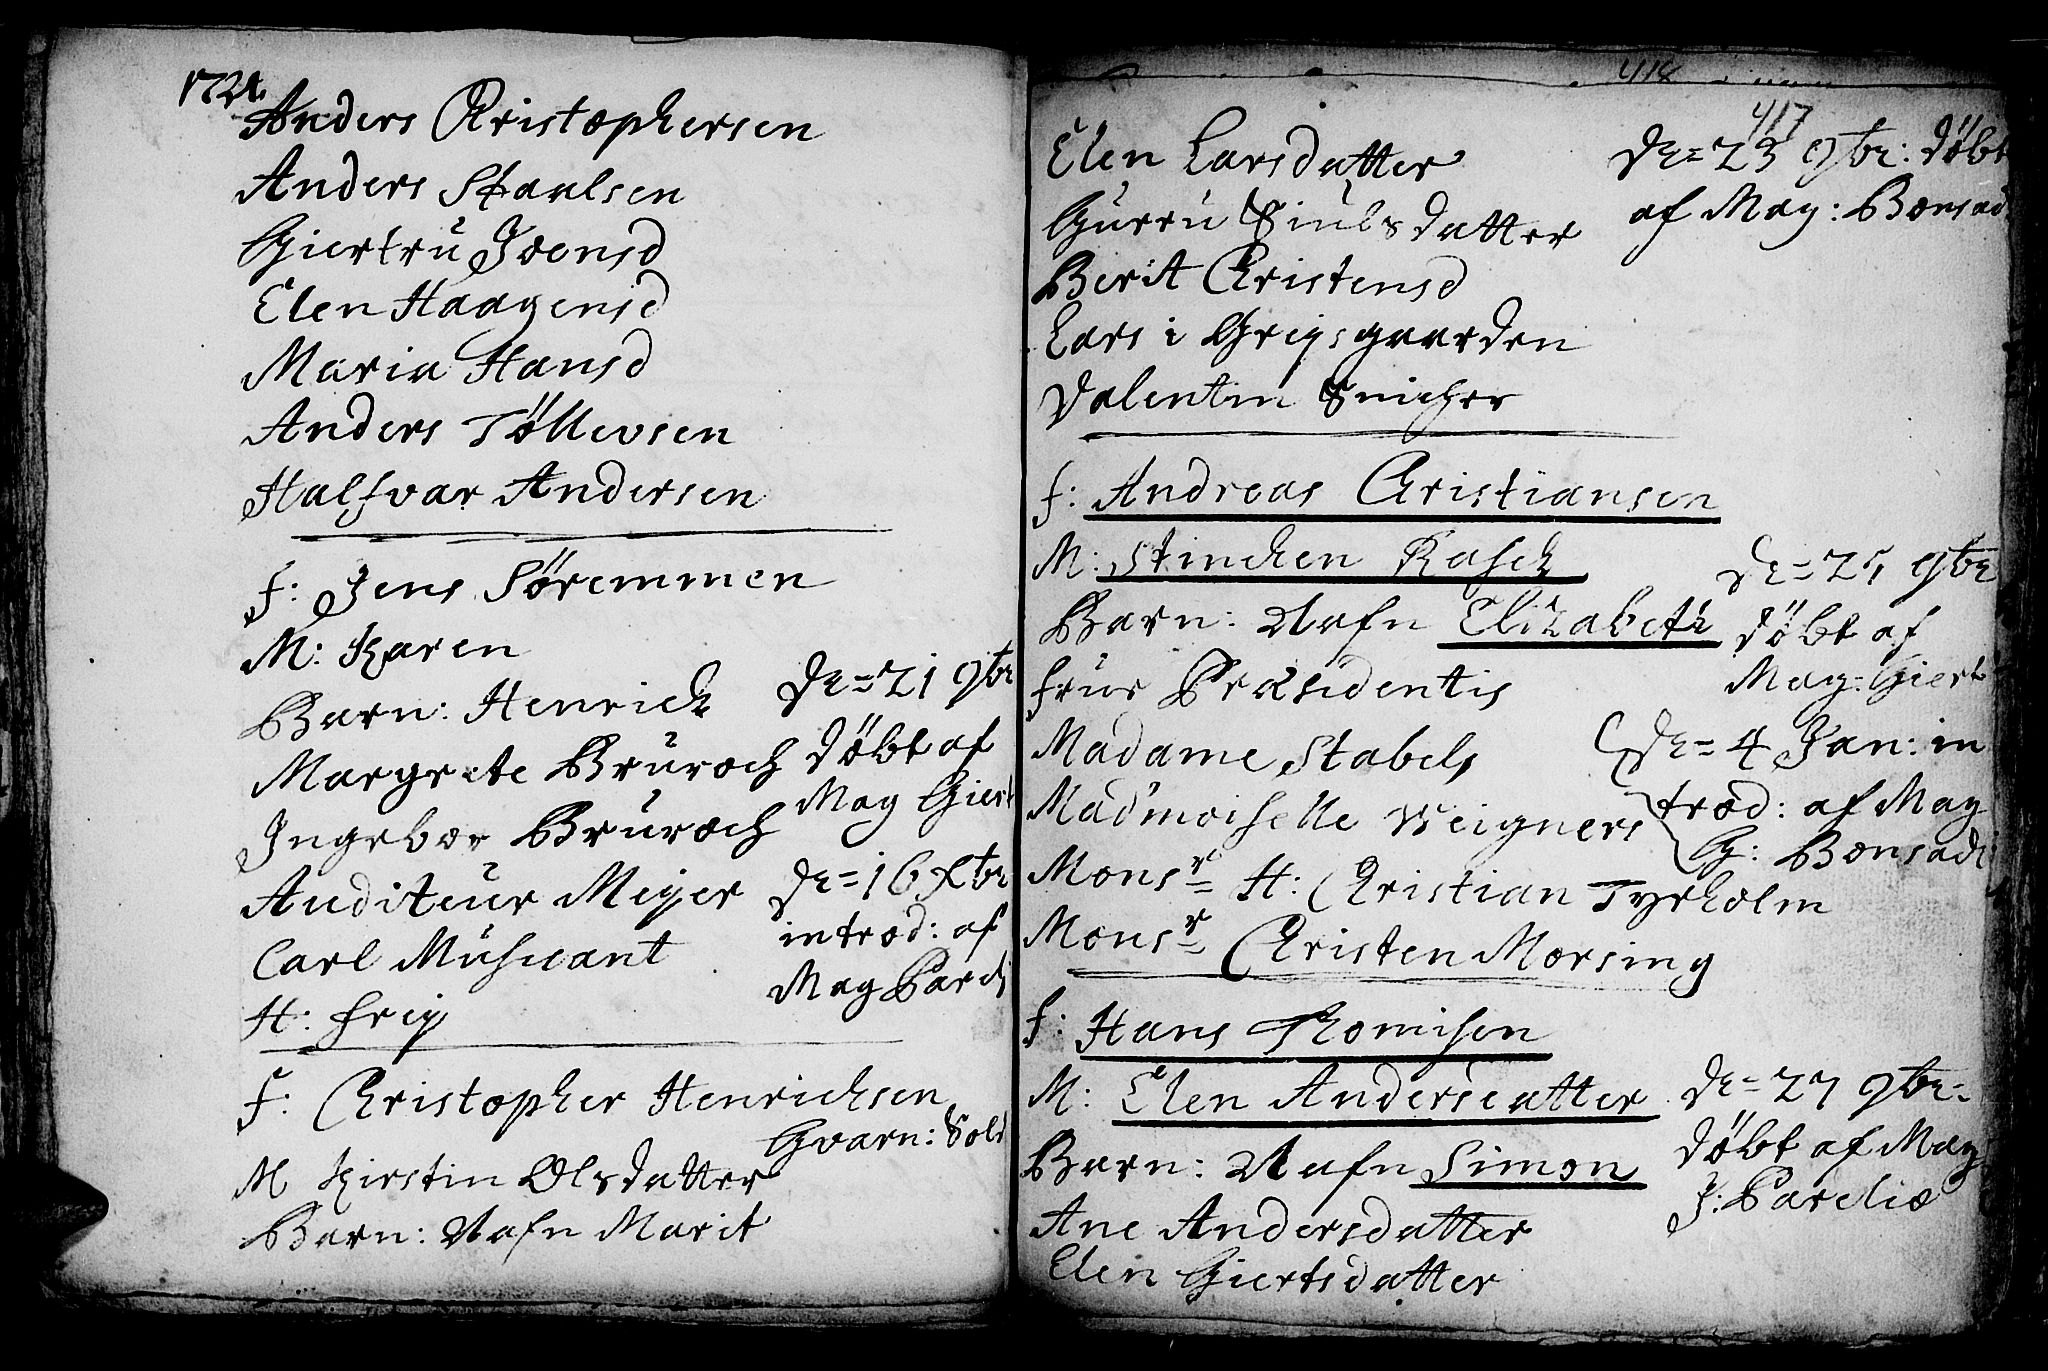 1721.
Anders Christophersen
Anders Staulsen
Giertru Joensd
Elen Haagensd
Maria Hansd
Anders Töllevsen
Halfvar Andersen
f: Jens Söremmen
M: Karen
Barn: Henrich
Margrete Bruroch
Ingebor Bruroch
Auditeur Meyer
Carl Musicant
H: Friis
de = 21 9br
döbt af
Mag Giert
de = 16 Xbr
introd: af
Mag Pareli
f: Christopher Henrichsen
Gvarn: Sold
M Kirstin Olsdatter
Barn: Nafn Marit
418
417
Elen Larsdatter
Gurru Siulsdatter
Berit Christensd
Lars i Gripsgaarden
Valentin Snicher
de = 23 9br: döbt
af Mag: Bonsad
f: Andreas Christiansen
M: Stinchen Rasch
Barn: Nafn Elizabeth
Frue Præsidentis
Madame Stabels
Mad'moiselle Weigners
Monsr H: Christian Tyrholm
Monsr Christen Morsing
de = 25 9br
döbt af
Mag: Giert
de = 4 Jan: in
trod: af Mag
G: Bonsach
f: Hans Thomisen
M: Elen Andersdatter
Barn: Nafn Simon
Ane Andersdatter
Elen Giertsdatter
de = 27 9br:
döbt af Mag
J: Parelio